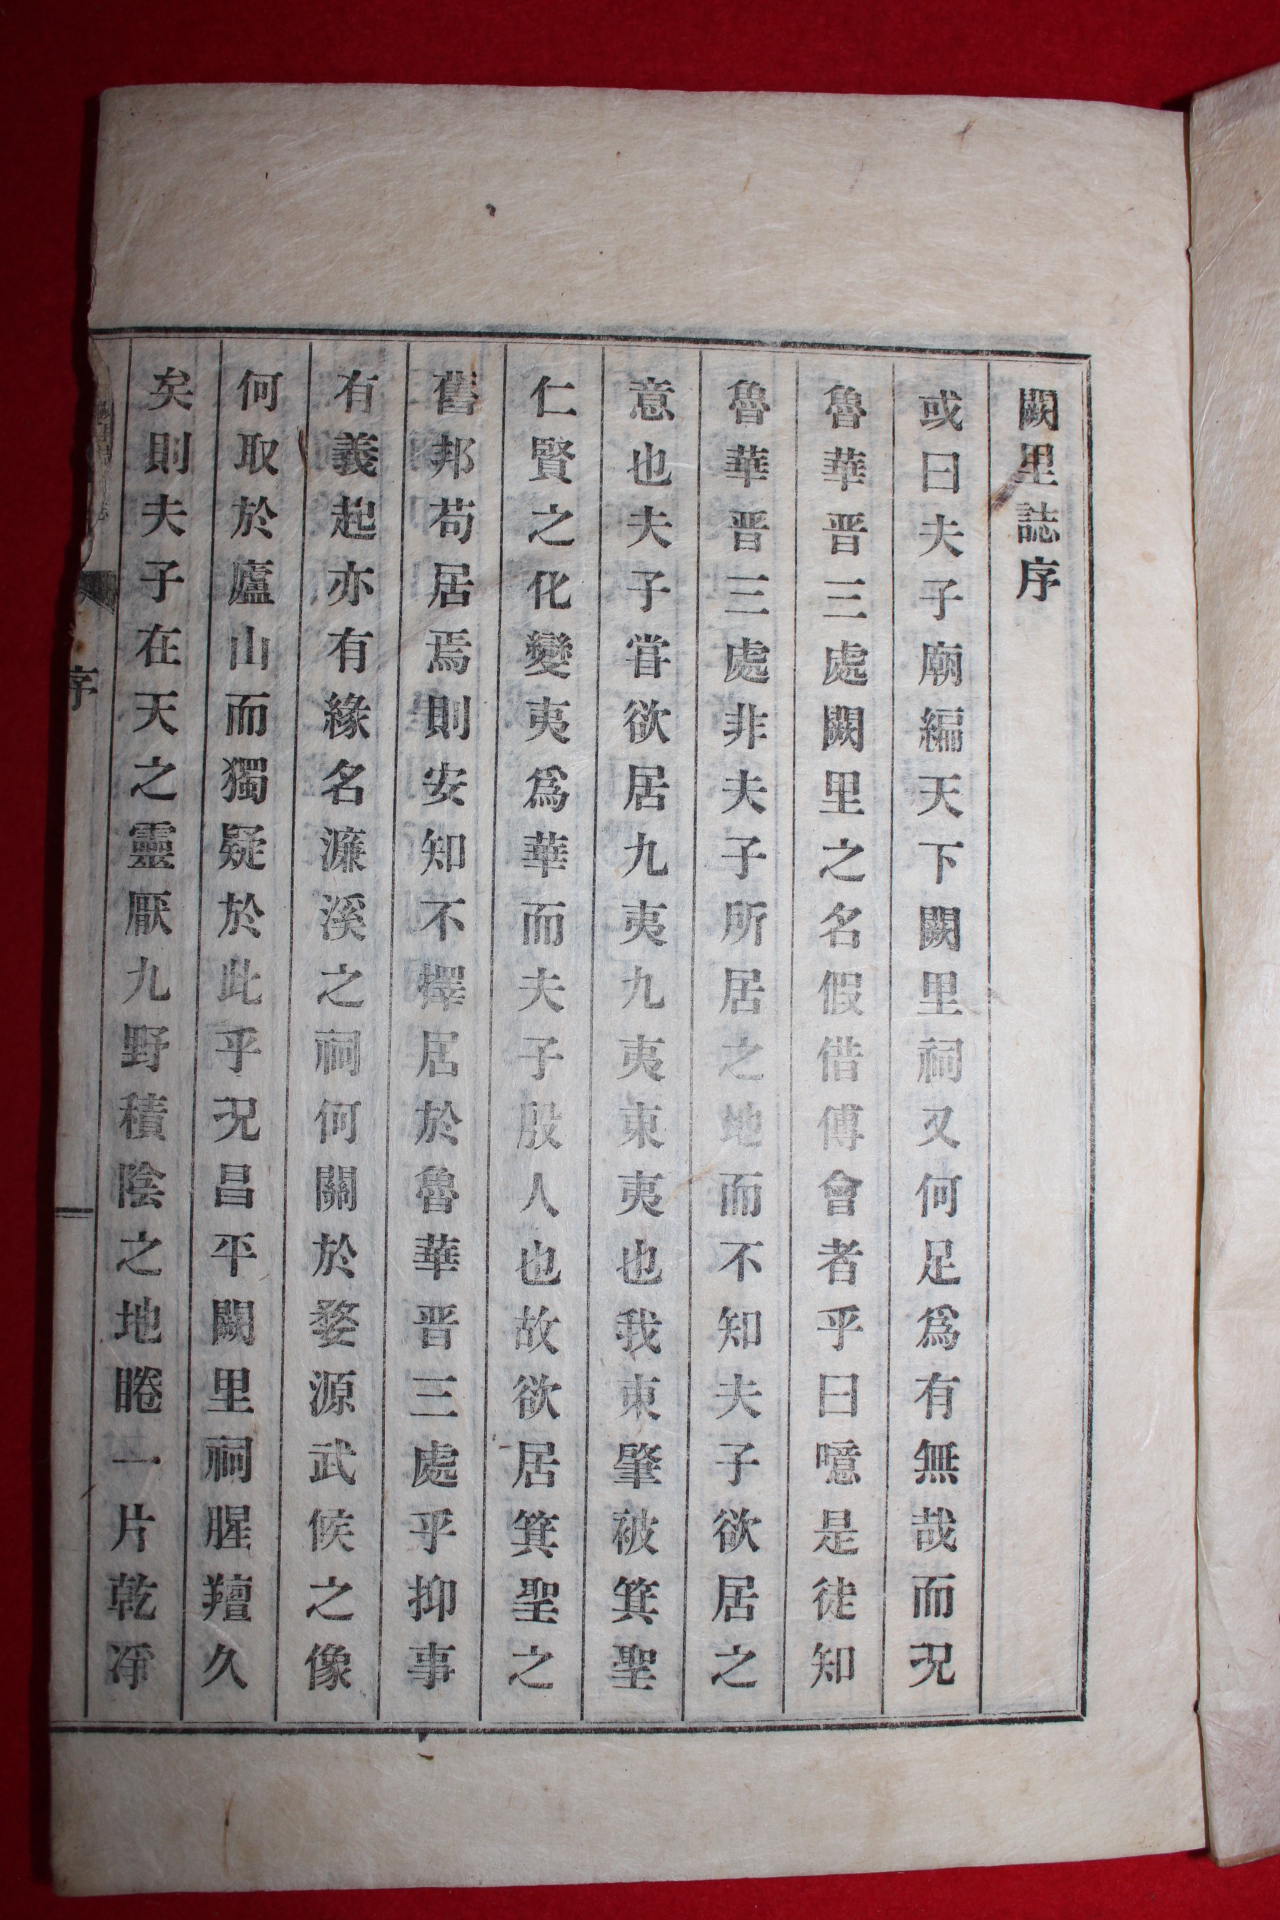 闕里誌序
或曰夫子廟編天下闕里祠又何足爲有無哉而況
魯華晋三處闕里之名假借傅會者乎曰噫是徒知
魯華晋三處非夫子所居之地而不知夫子欲居之
意也夫子甞欲居九夷九夷東夷也我東肇被箕聖
仁賢之化變夷爲華而夫子殷人也故欲居箕聖之
舊邦苟居焉則安知不擇居於魯華晋三處乎抑事
有義起亦有緣名濂溪之祠何關於婺源武侯之像
何取於廬山而獨疑於此乎況昌平闕里祠腥羶久
矣則夫子在天之靈厭九野積陰之地睠一片乾凈
序